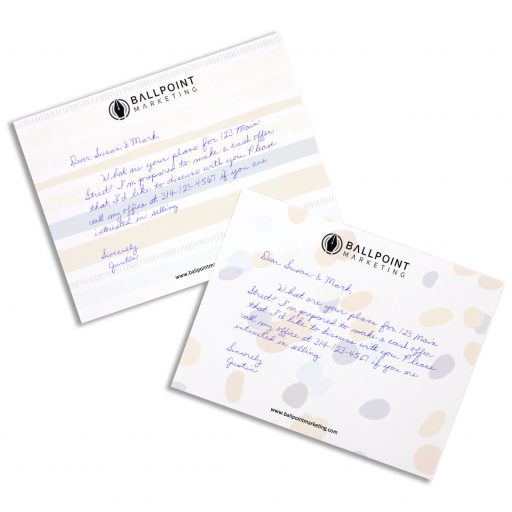 BALLPOINT
MARKETING
Dear Susan & Mark,
What are your plans for 123 Main
Street? I'm prepared to make a cash offer
that I'd like to discuss with you. Please
call my office at 314-123-4567 if you are
interested in selling
Sincerely
Justin
www.ballpointmarketing.com
BALLPOINT
MARKETING
Dear Susan & Mark
What are your plans for 123 Main
Street? I'm prepared to make a cash offer
that I'd like to discuss with you. Please
call my office at 314-123-4567 if you are
interested in selling
Sincerely
Justin
www.ballpointmarketing.com